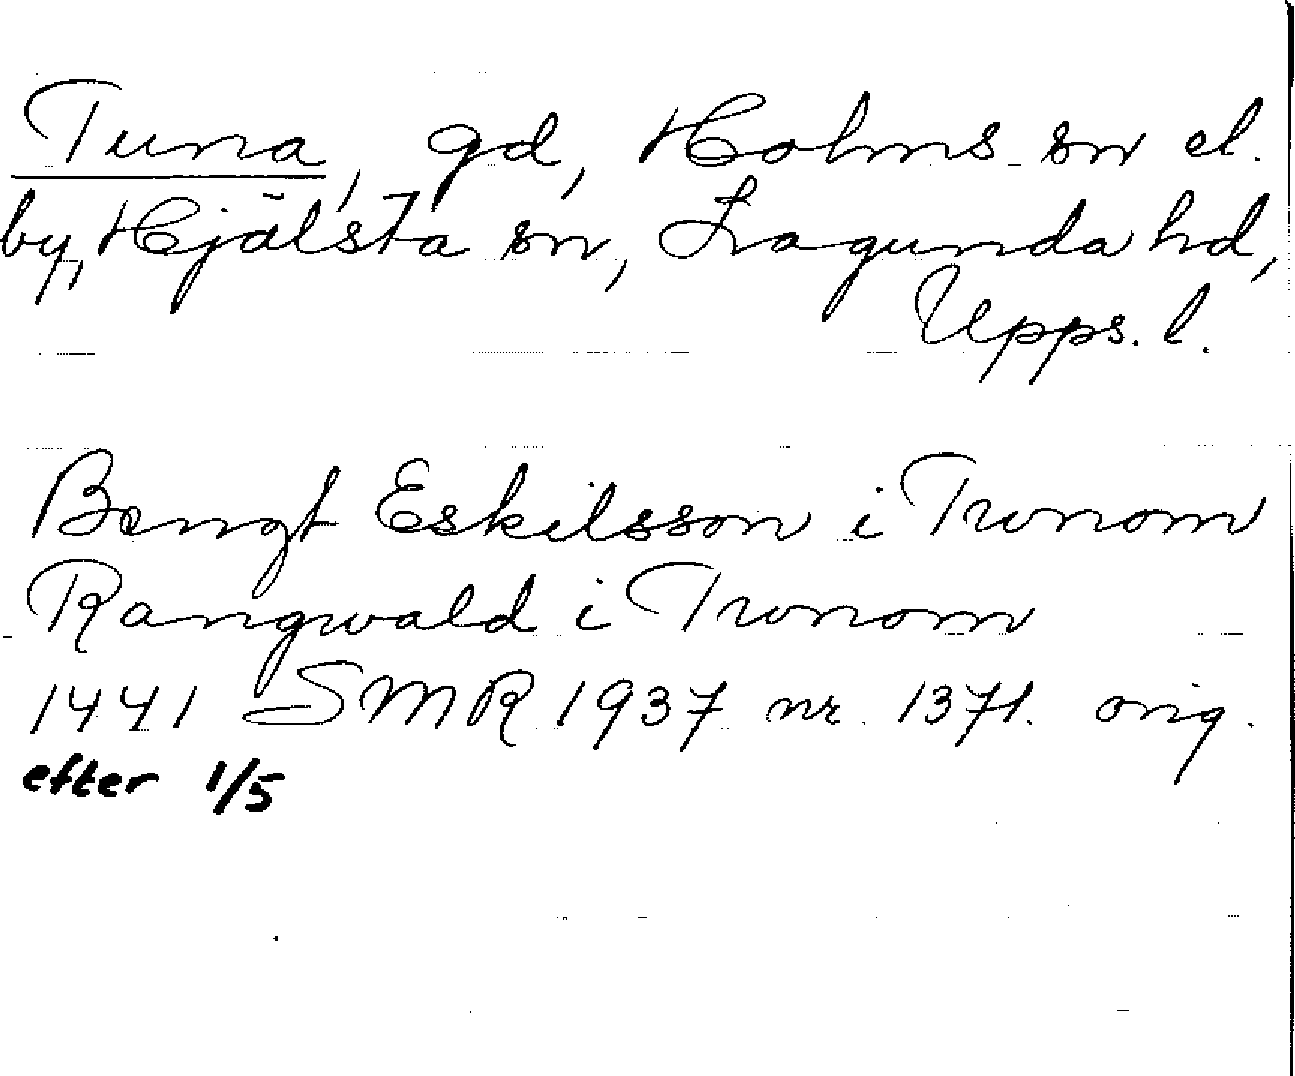 Tuna, gd, Holms sn el.
by, Hjälsta sn, Lagunda hd,
Upps. l.
Bengt Eskilsson i Twnom
Rangwald i Twnom
1441 SMR 1937 nr. 1371. orig.
efter 1/5